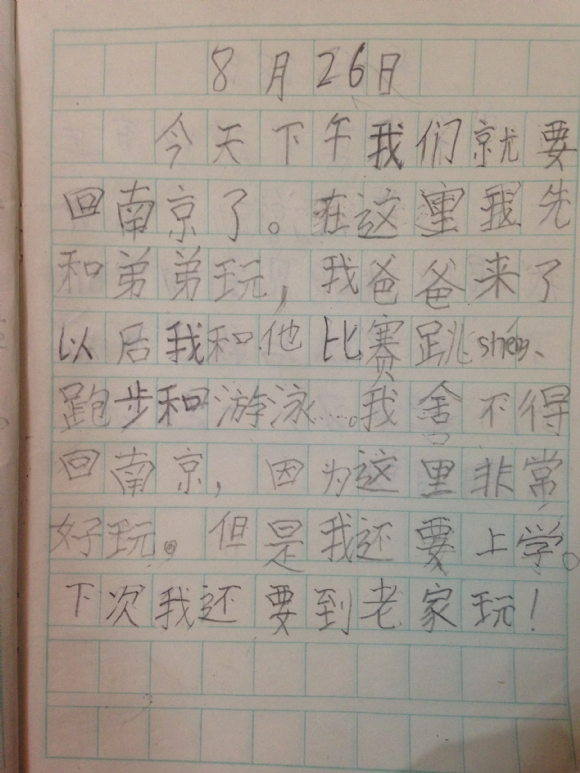 8月26日
今天下午我们就要
回南京了。在这里我先
和弟弟玩，我爸爸来了
以后我和他比赛跳shéng、
跑步和游泳……。我舍不得
回南京，因为这里非常
好玩。但是我还要上学。
下次我还要到老家玩！